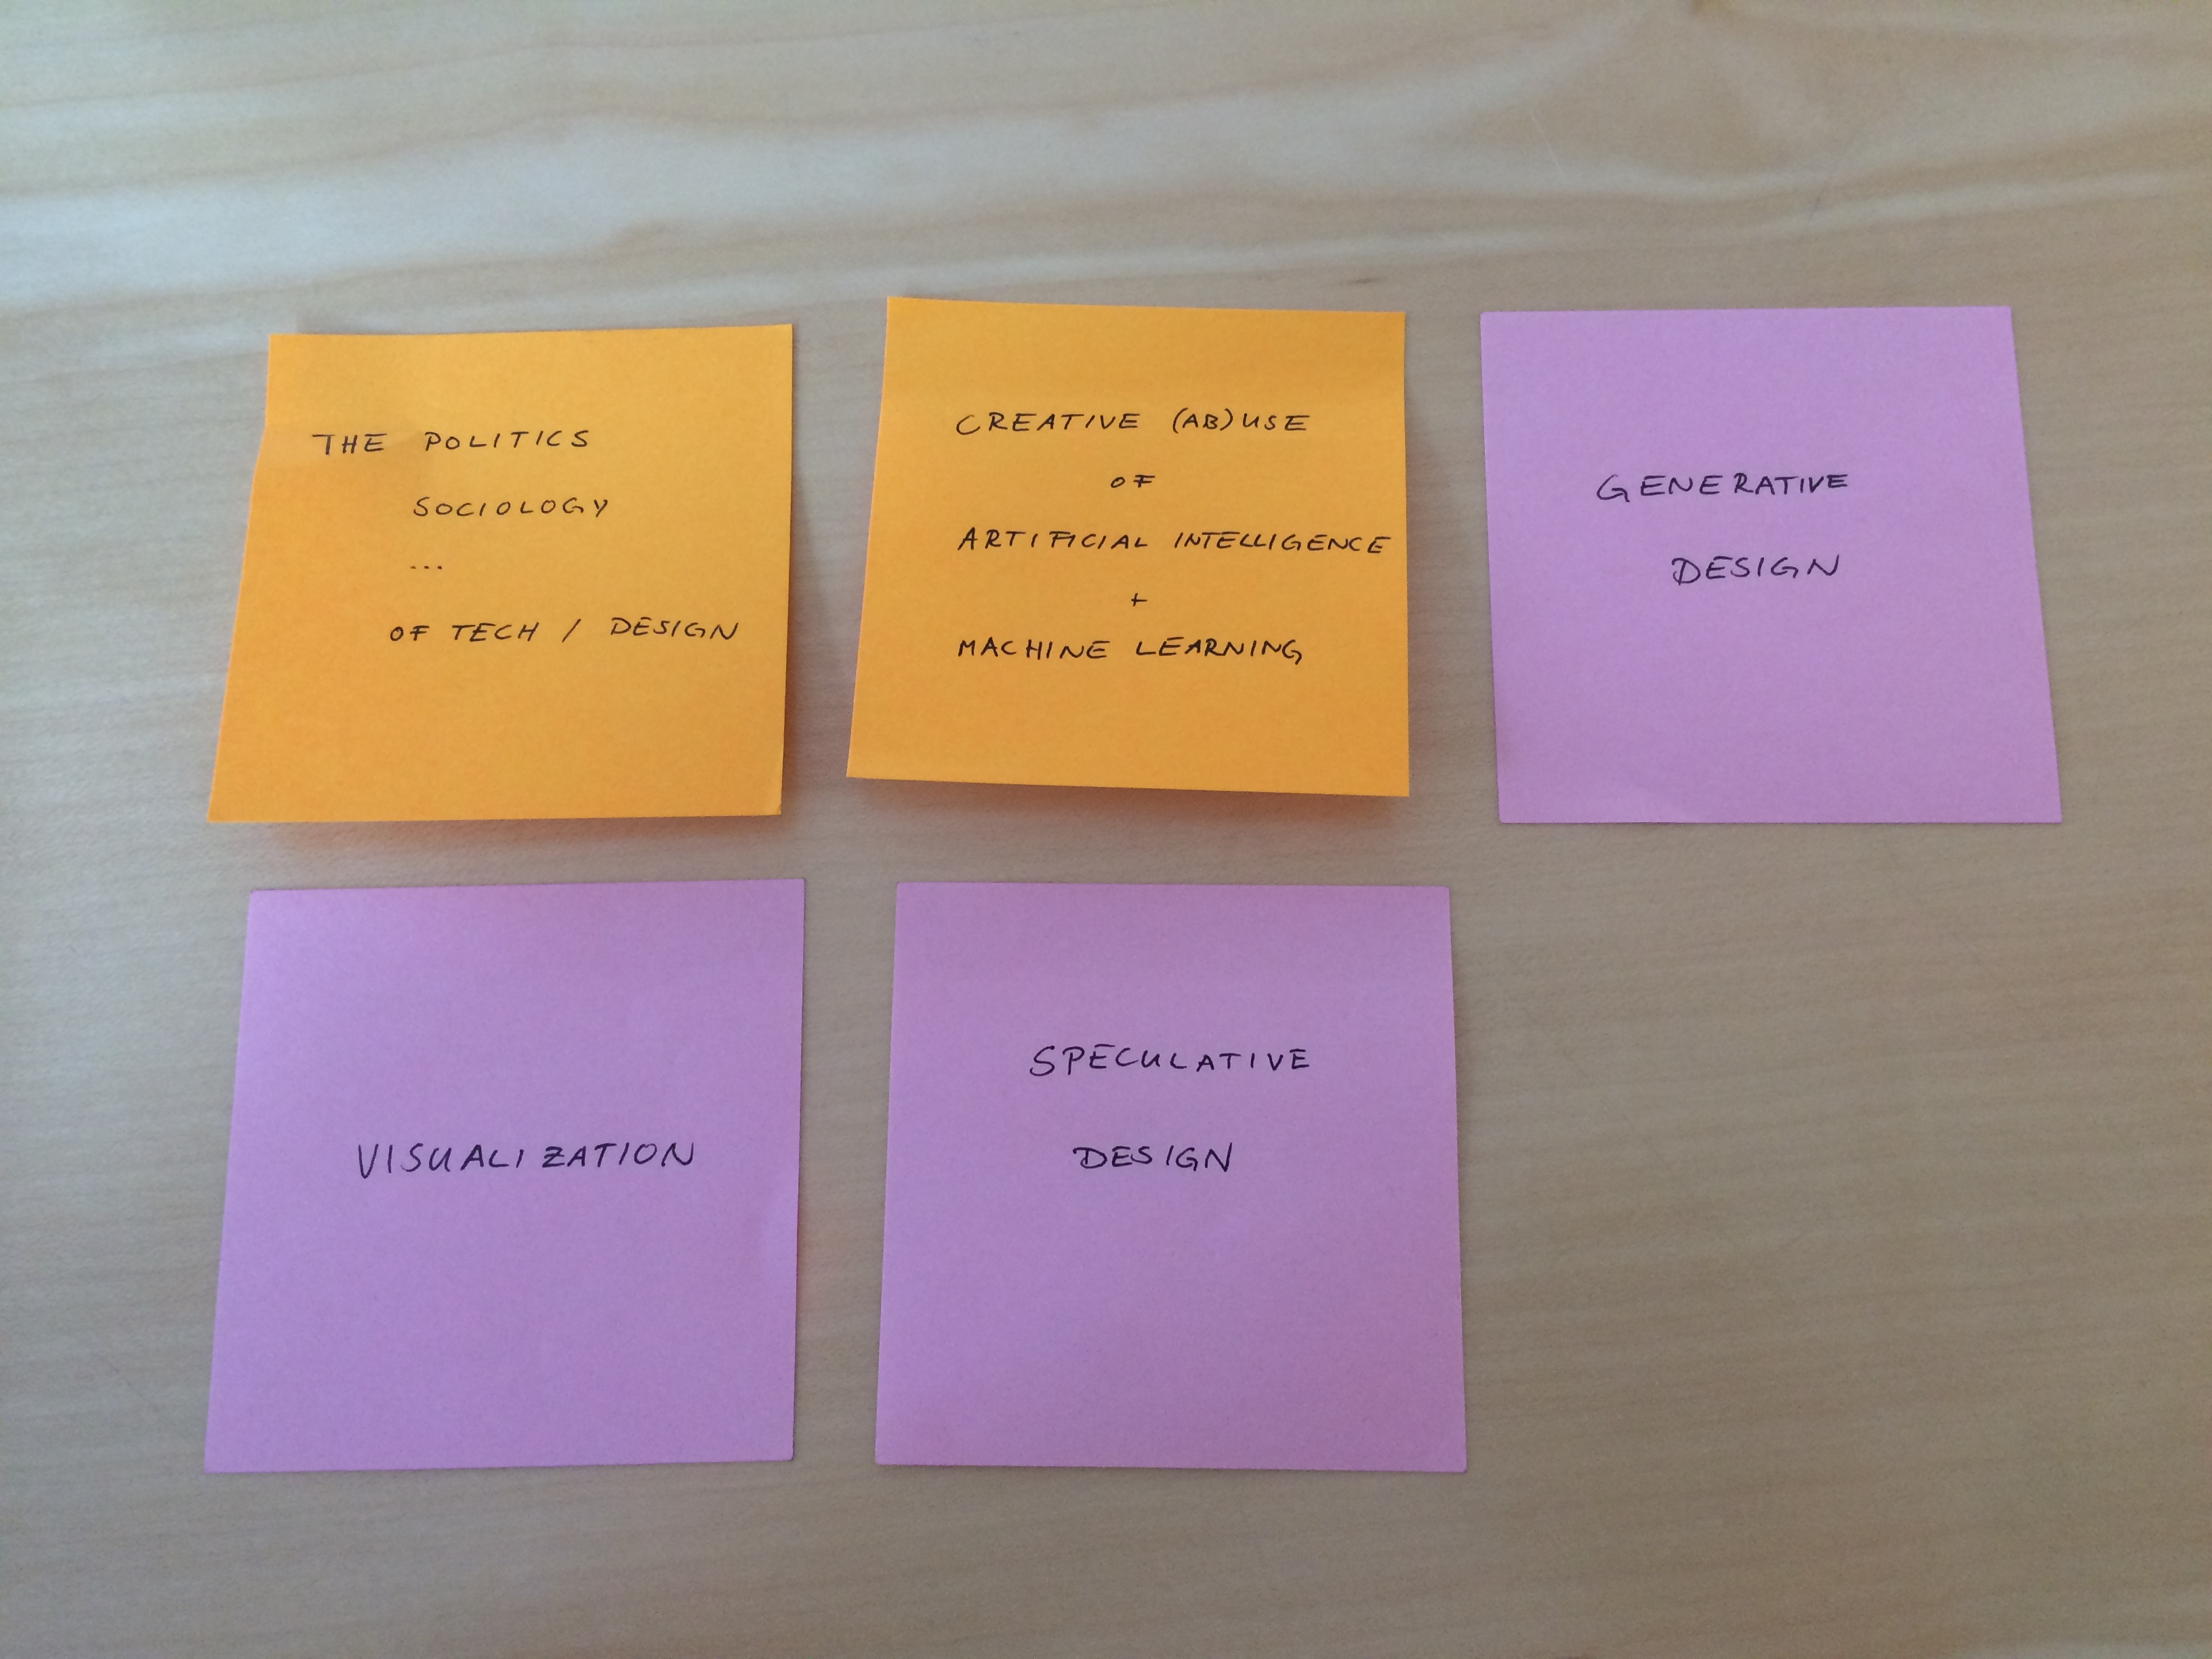 THE POLITICS
SOCIOLOGY
...
OF TECH / DESIGN
CREATIVE (AB)USE
OF
ARTIFICIAL INTELLIGENCE
+
MACHINE LEARNING
GENERATIVE
DESIGN
VISUALIZATION
SPECULATIVE
DESIGN